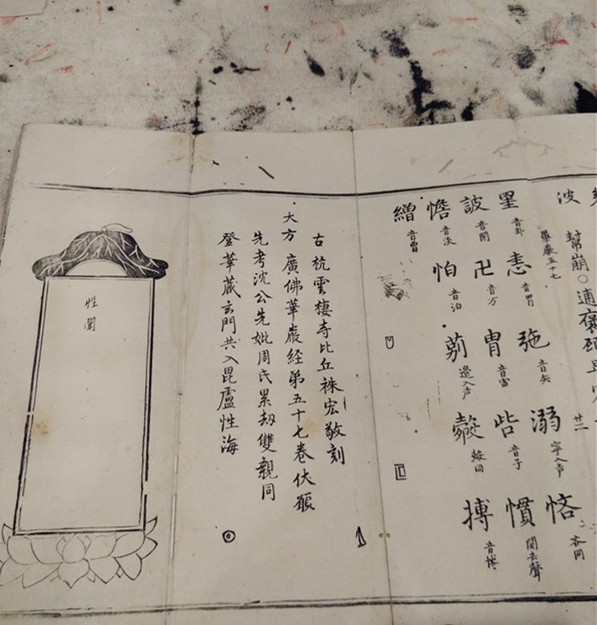 波
華嚴五十七
罣 音卦 恚 音胃 弛 音矢 溺 寧入声
詖 音閉 卍 音万 冑 音宙 呰 音子 慣 関去聲
憺 音淡 怕 音泊 莂 邊入声 搏 音博
繒 音曾
古杭雲棲寺比丘袾宏敬刻
大方廣佛華嚴經第五十七卷伏願
先考沈公先妣周氏累劫雙親同
登華藏玄門共入毘盧性海
性聞